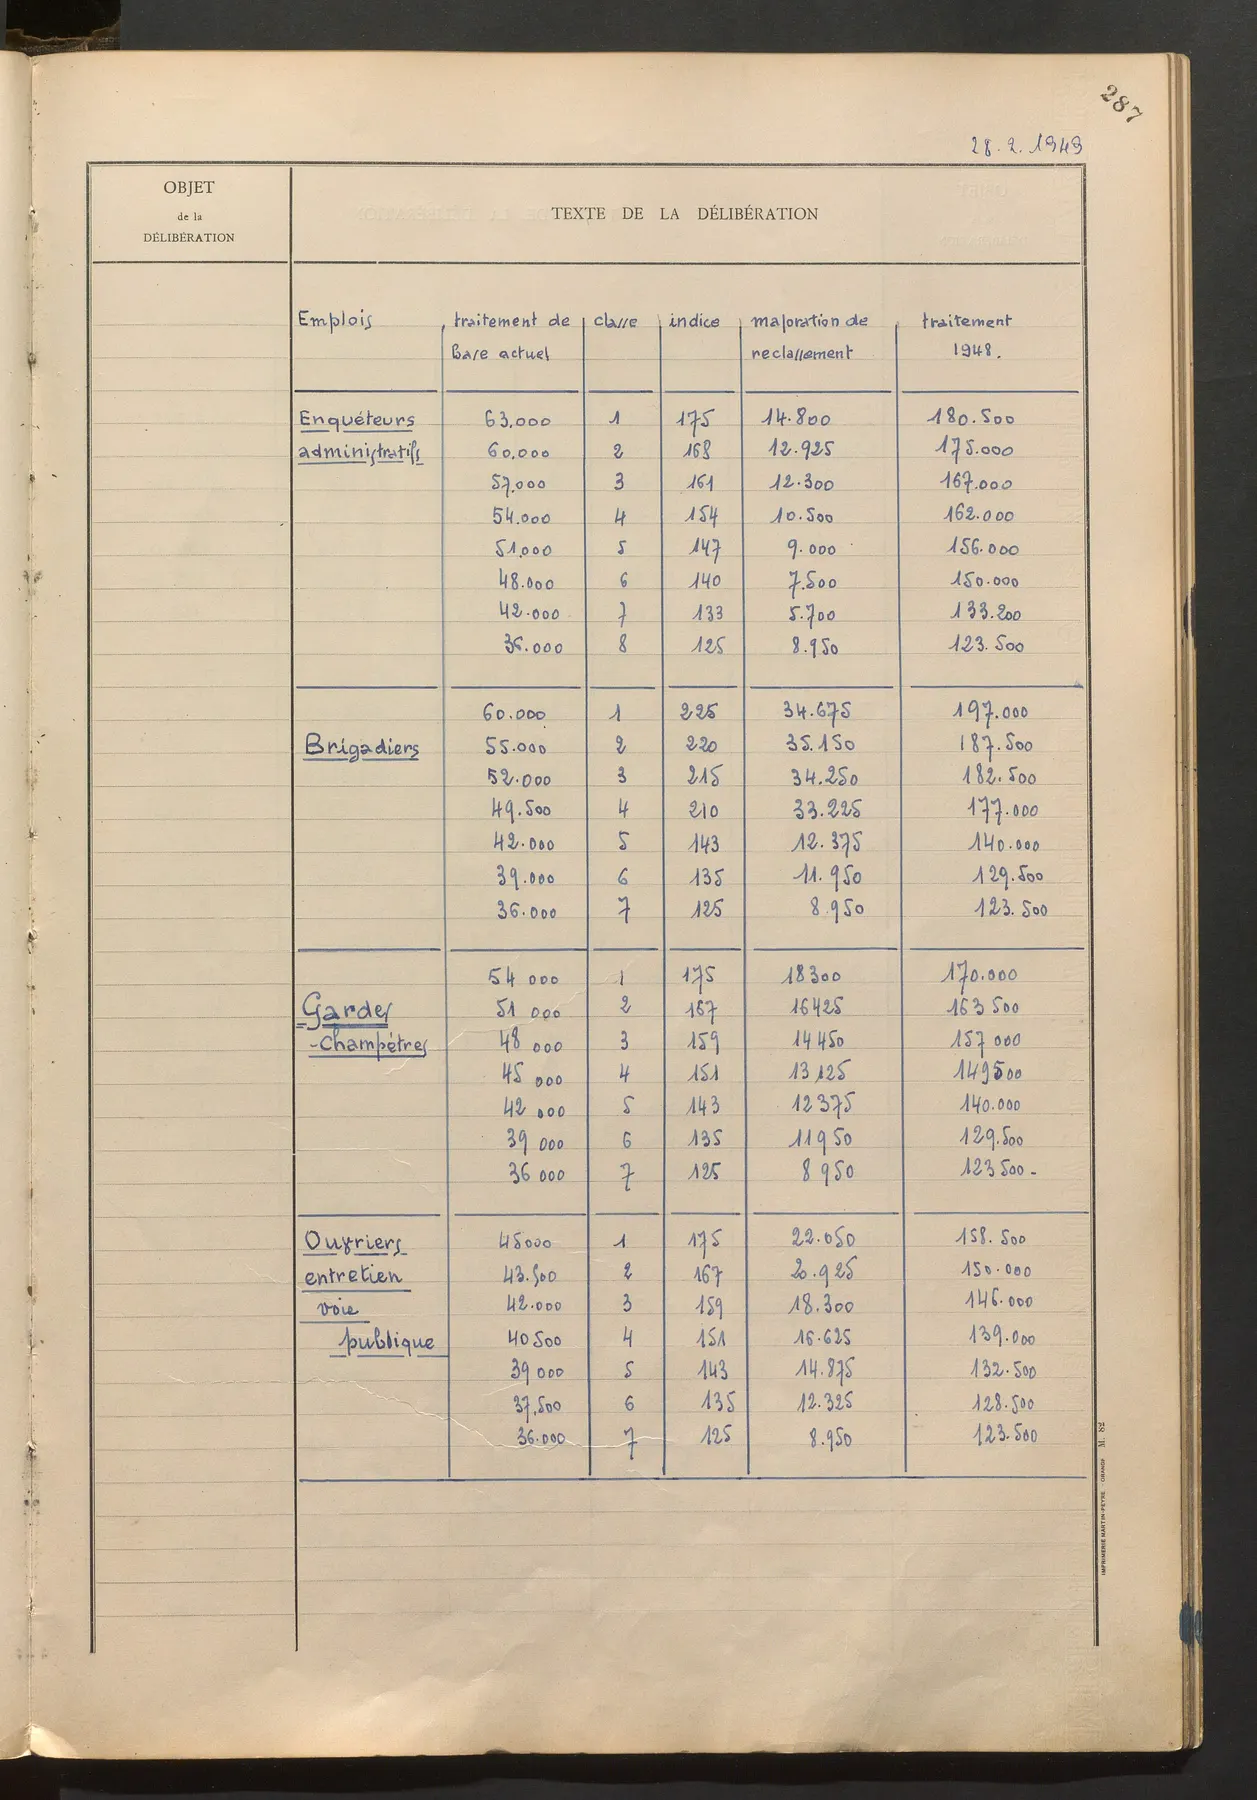 287
28.2.1949
OBJET
de la
DÉLIBÉRATION
TEXTE DE LA DÉLIBÉRATION
Emplois traitement de classe indice majoration de traitement
Base actuel reclassement 1948.
Enquêteurs 63.000 1 175 14.800 180.500
administratifs 60.000 2 168 12.925 175.000
57.000 3 161 12.300 167.000
54.000 4 154 10.500 162.000
51.000 5 147 9.000 156.000
48.000 6 140 7.500 150.000
42.000 7 133 5.700 133.200
36.000 8 125 8.950 123.500
60.000 1 225 34.675 197.000
Brigadiers 55.000 2 220 35.150 187.500
52.000 3 215 34.250 182.500
49.500 4 210 33.225 177.000
42.000 5 143 12.375 140.000
39.000 6 135 11.950 129.500
36.000 7 125 8.950 123.500
54 000 1 175 18300 170.000
Gardes 51 000 2 167 16425 163 500
-Champêtres 48 000 3 159 14450 157 000
45 000 4 151 13125 149500
42 000 5 143 12375 140.000
39 000 6 135 11950 129.500
36 000 7 125 8950 123500-
Ouvriers 45000 1 175 22.050 158.500
entretien 43.500 2 167 20.925 150.000
voie 42.000 3 159 18.300 146.000
publique 40500 4 151 16.625 139.000
39000 5 143 14.875 132.500
37,500 6 135 12.325 128.500
36.000 7 125 8.950 123.500
IMPRIMERIE MARTIN-PEYRE - ORANGE M. 82